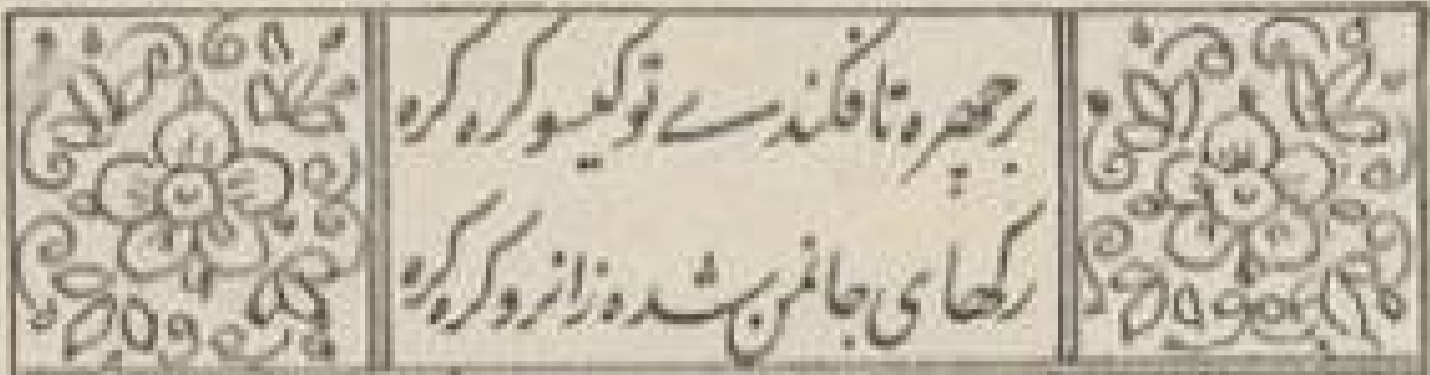 بر چهره تا فکندے تو گیسو گره گره
رگهای جانمن شده زانرو گره گره